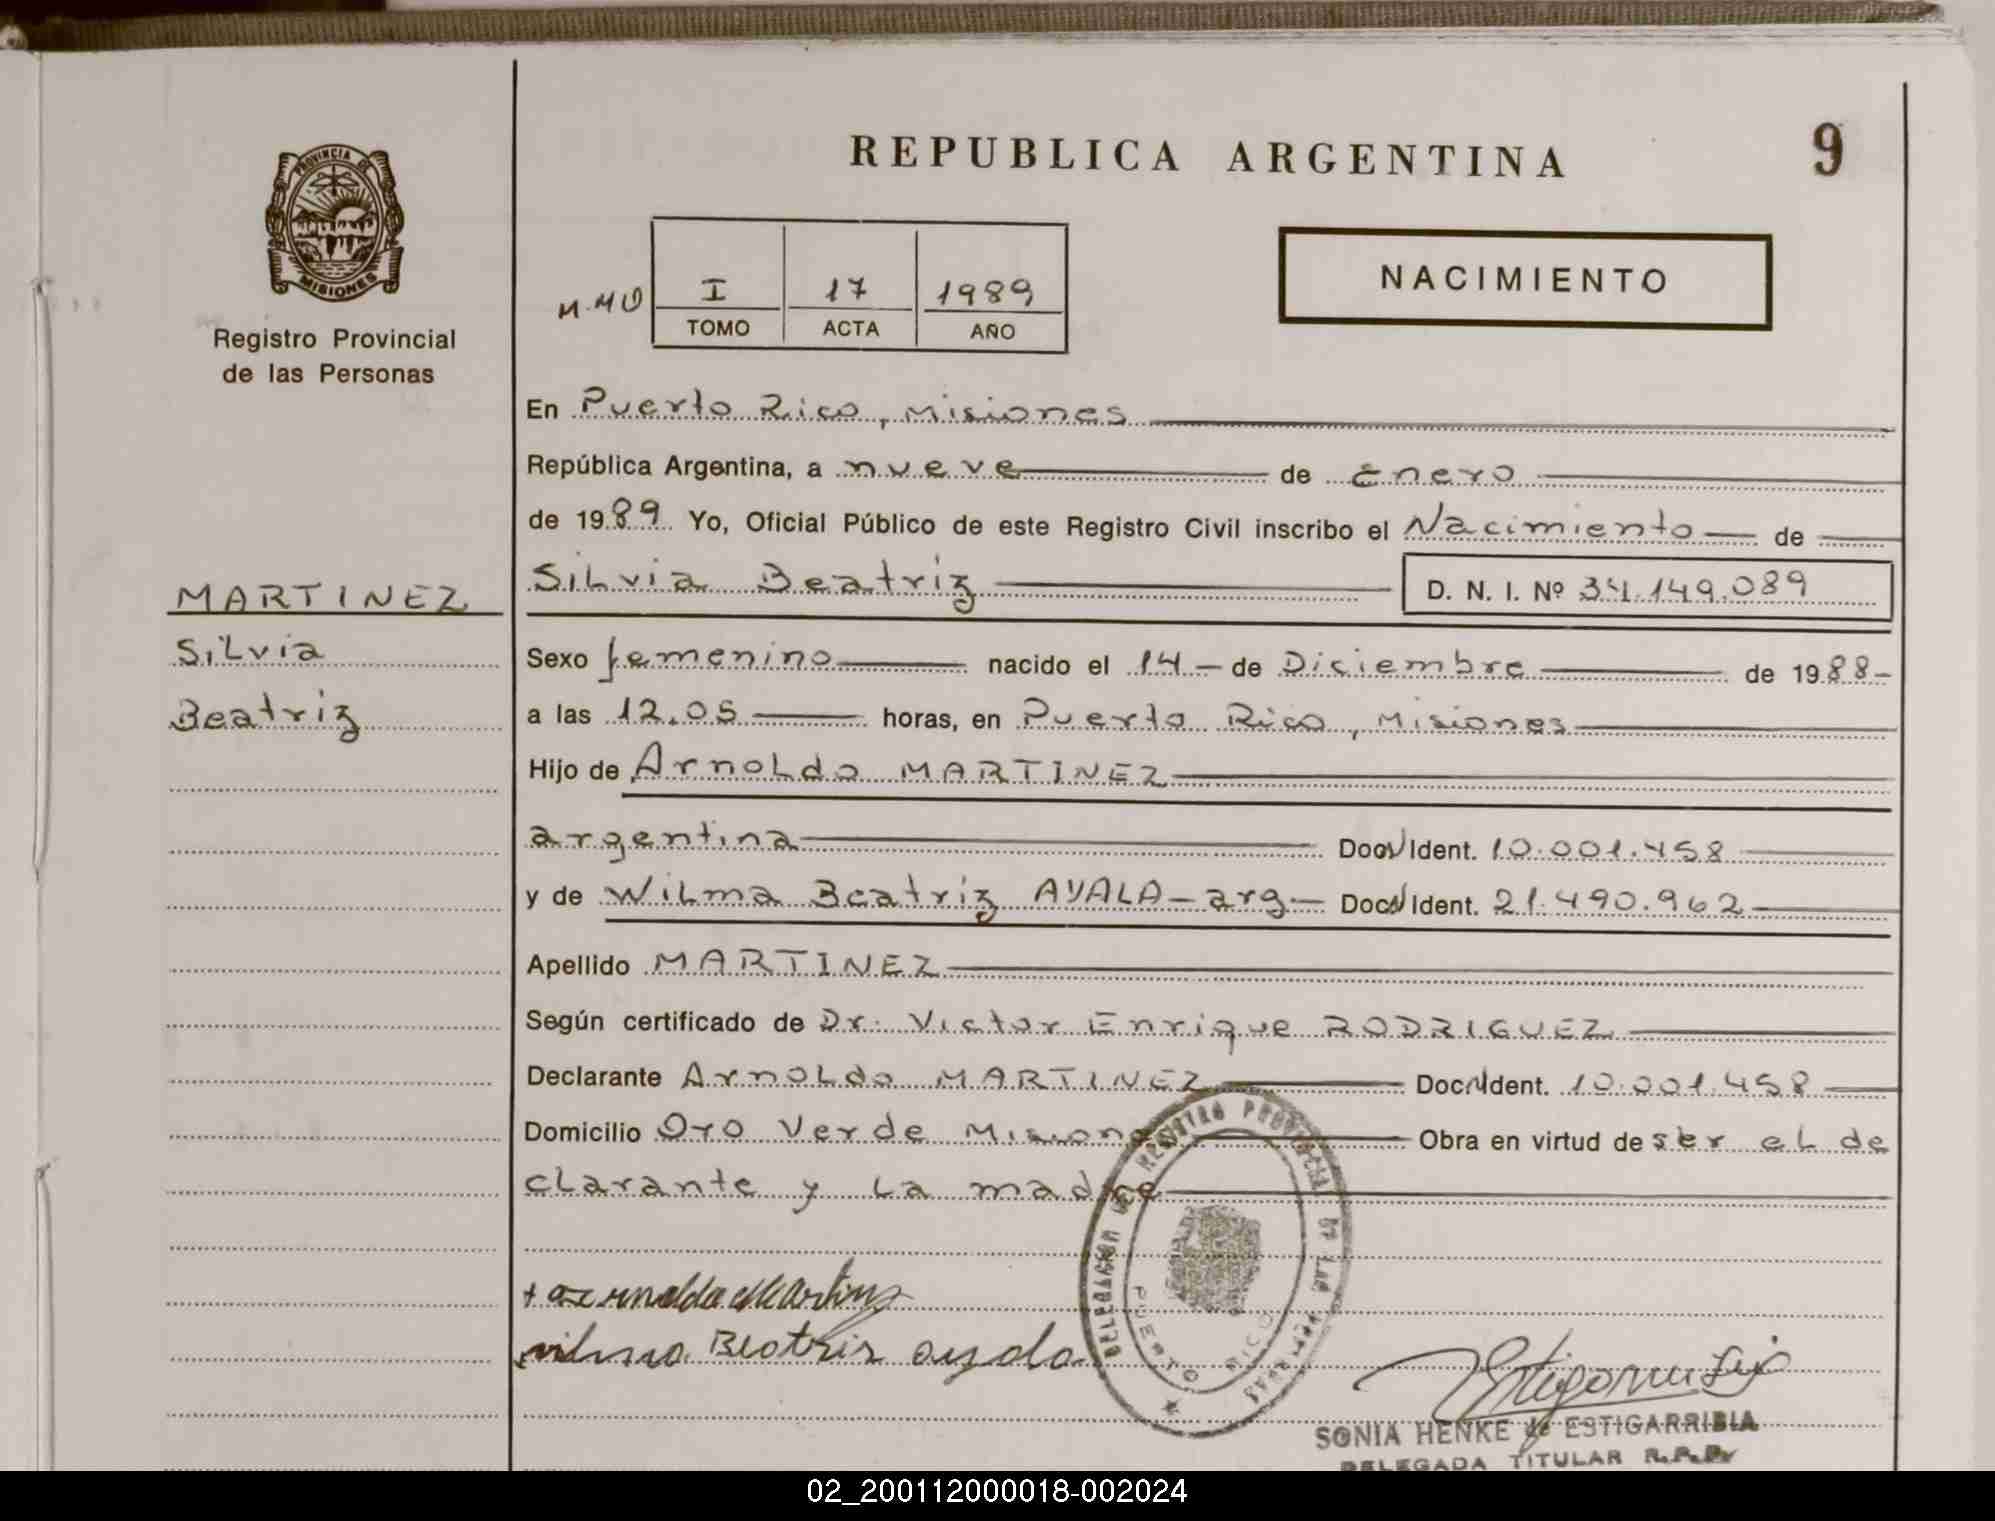 REPUBLICA ARGENTINA
9
PROVINCIA DE
MISIONES
Registro Provincial
de las Personas
NACIMIENTO
M.MO
I 17 1989
TOMO ACTA AÑO
En Puerto Rico, Misiones
República Argentina, a nueve de Enero
de 1989 Yo, Oficial Público de este Registro Civil inscribo el Nacimiento de
Silvia Beatriz D. N. I. Nº 34.149.089
MARTINEZ
Silvia
Beatriz
Sexo femenino nacido el 14 de Diciembre de 1988
a las 12.05 horas, en Puerto Rico, Misiones
Hijo de Arnoldo MARTINEZ
argentina Doc. Ident. 10.001.458
y de Wilma Beatriz AYALA - arg - Doc. Ident. 21.490.962
Apellido MARTINEZ
Según certificado de Dr. Victor Enrique RODRIGUEZ
Declarante Arnoldo MARTINEZ Doc. Ident. 10.001.458
Domicilio Oro Verde Misiones Obra en virtud de ser el de
clarante y la madre
DELEGACION DEL REGISTRO PROVINCIAL DE LAS PERSONAS
PUERTO RICO
Beatris
SONIA HENKE de ESTIGARRIBIA
DELEGADA TITULAR R.P.P.
02_200112000018-002024